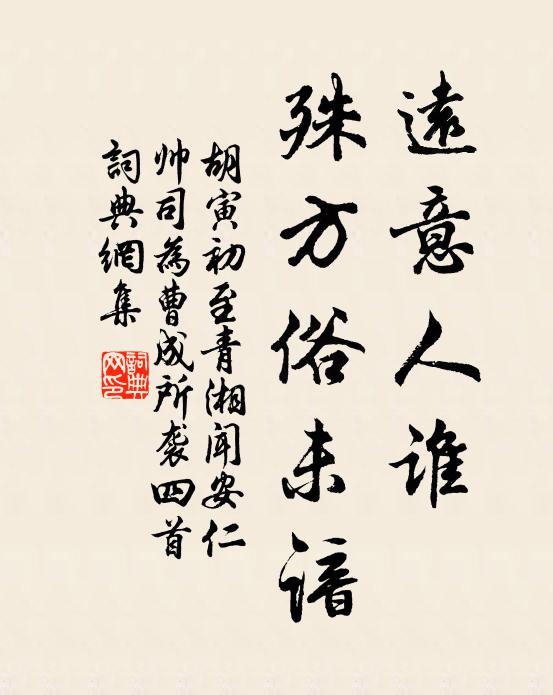 遠意人誰
殊方俗未諳
胡寅初至青湘聞安仁
帅司為曹成所袭四首
詞典網集
詞典网印